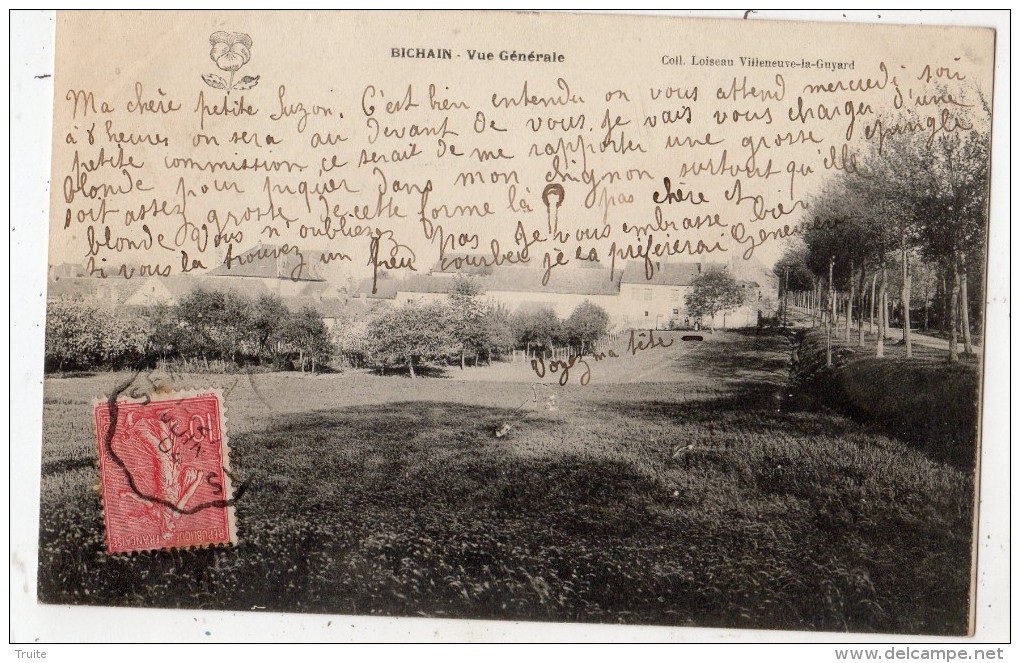 BICHAIN - Vue Générale
Coll. Loiseau Villeneuve-la-Guyard
Ma chère petite Suzon. C'est bien entendu on vous attend mercredi soir
à 8 heures on sera au devant de vous. Je vais vous charger d'une
petite commission, ce serait de me rapporter une grosse épingle
blonde pour piquer dans mon chignon surtout qu'elle
soit assez grosse de cette forme là pas chère et
blonde Vous n'oublierez pas Je vous embrasse bien
si vous la trouvez un peu courbée je la préférerai Geneviève
Voyez ma tête
SENS
10
REPUBLIQUE FRANÇAISE
Truite
www.delcampe.net